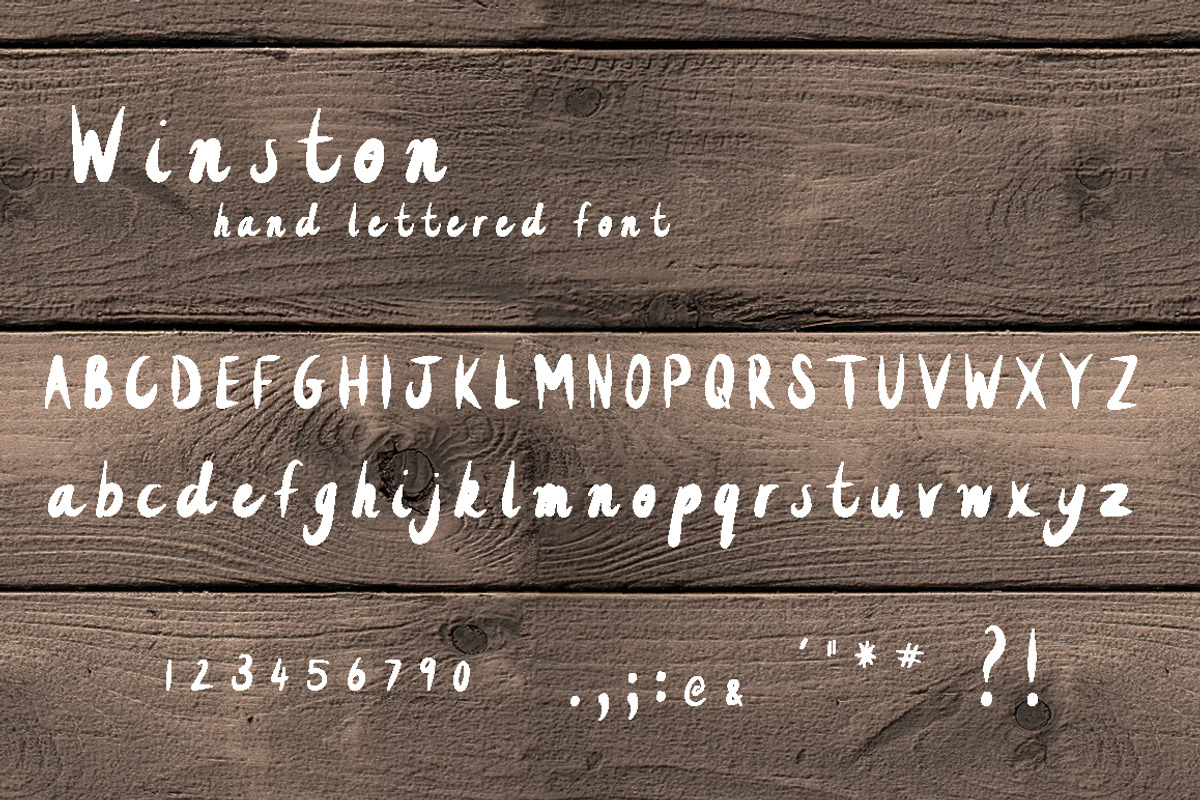 Winston
hand lettered font
ABCDEFGHIJKLMNOPQRSTUVWXYZ
abcdefghijklmnopqrstuvwxyz
1 2 3 4 5 6 7 9 0 . , ; : @ & ' " * # ? !